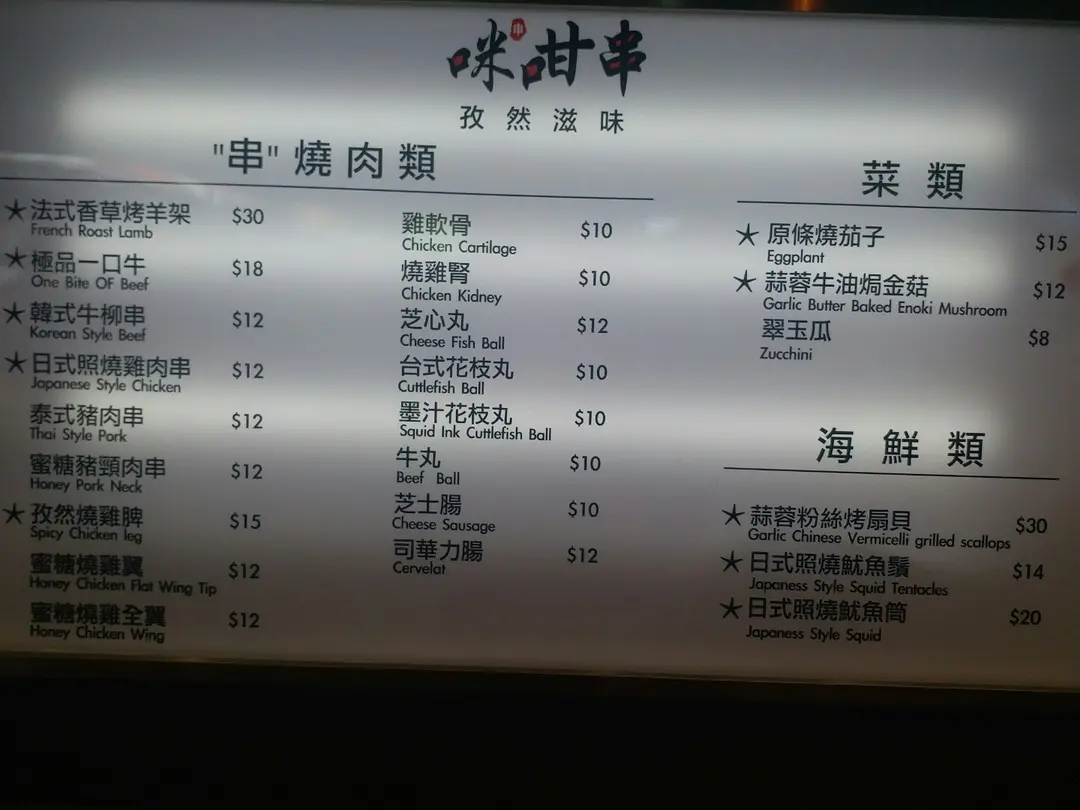 咪咁串
串
孜然滋味
"串"燒肉類
★法式香草烤羊架 $30
French Roast Lamb
★極品一口牛 $18
One Bite OF Beef
★韓式牛柳串 $12
Korean Style Beef
★日式照燒雞肉串 $12
Japanese Style Chicken
泰式豬肉串 $12
Thai Style Pork
蜜糖豬頸肉串 $12
Honey Pork Neck
★孜然燒雞脾 $15
Spicy Chicken leg
蜜糖燒雞翼 $12
Honey Chicken Flat Wing Tip
蜜糖燒雞全翼 $12
Honey Chicken Wing
雞軟骨 $10
Chicken Cartilage
燒雞腎 $10
Chicken Kidney
芝心丸 $12
Cheese Fish Ball
台式花枝丸 $10
Cuttlefish Ball
墨汁花枝丸 $10
Squid Ink Cuttlefish Ball
牛丸 $10
Beef Ball
芝士腸 $10
Cheese Sausage
司華力腸 $12
Cervelat
菜類
★原條燒茄子 $15
Eggplant
★蒜蓉牛油焗金菇 $12
Garlic Butter Baked Enoki Mushroom
翠玉瓜 $8
Zucchini
海鮮類
★蒜蓉粉絲烤扇貝 $30
Garlic Chinese Vermicelli grilled scallops
★日式照燒魷魚鬚 $14
Japaness Style Squid Tentacles
★日式照燒魷魚筒 $20
Japaness Style Squid